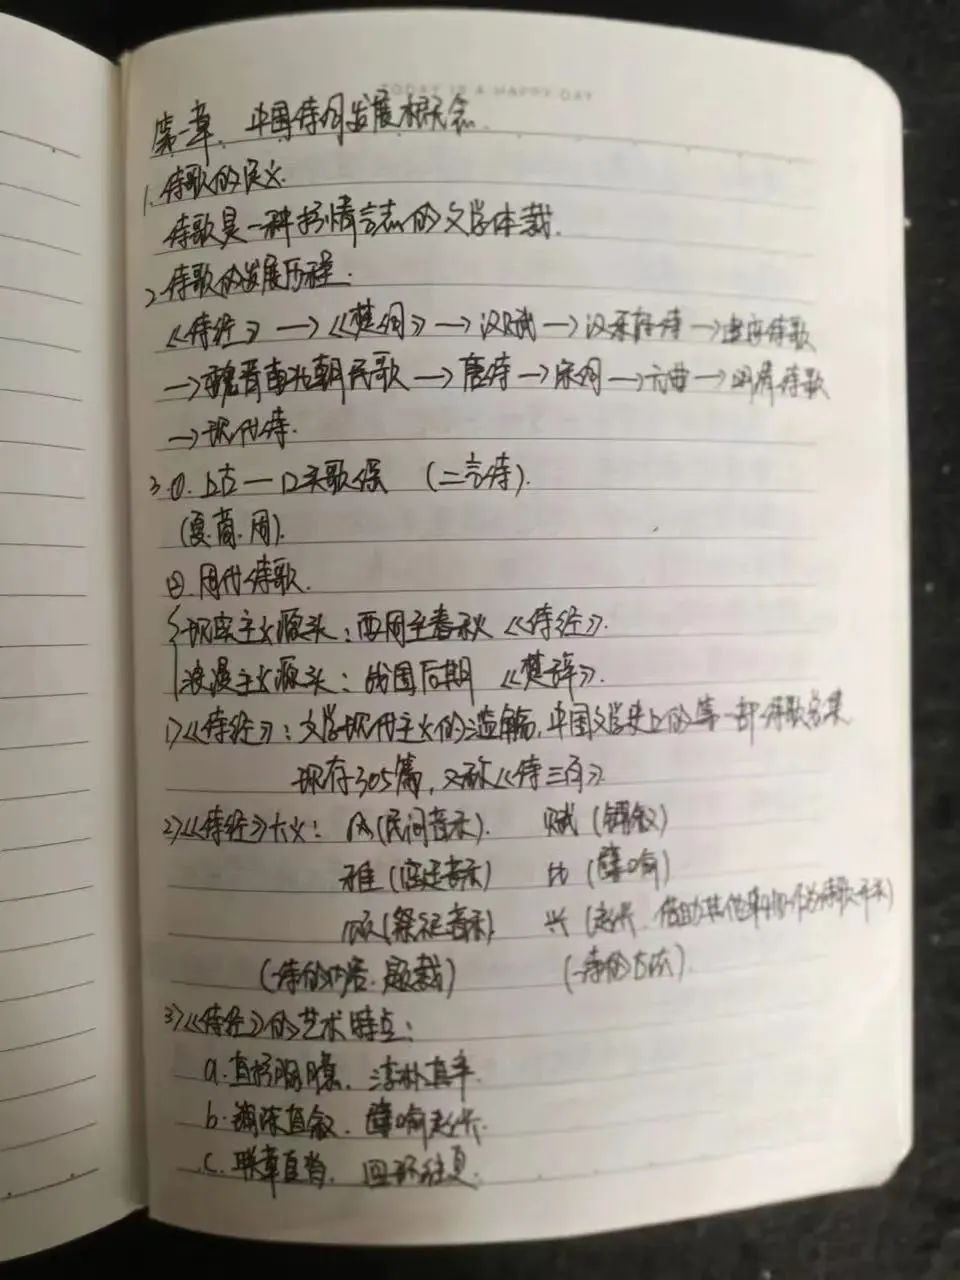 TODAY IS A HAPPY DAY
第一章、中国诗词发展概念
1. 诗歌的定义.
诗歌是一种抒情言志的文学体裁.
2. 诗歌的发展历程.
《诗经》→《楚词》→汉赋→汉乐府诗→建安诗歌
→魏晋南北朝民歌→唐诗→宋词→元曲→明清诗歌
→现代诗.
3.①.上古—口头歌谣 (二言诗).
(夏.商.周).
②.周代诗歌.
现实主义源头:西周至春秋《诗经》.
浪漫主义源头:战国后期《楚辞》.
1>《诗经》:文学现代主义的滥觞,中国文学史上的第一部诗歌总集
现存305篇,又称《诗三百》
2>《诗经》六义: 风(民间音乐). 赋(铺叙)
雅(宫廷音乐) 比(譬喻)
颂(祭祀音乐) 兴(起兴.借助其他事物作为诗歌开头)
(诗的内容.题裁) (诗的方法).
3>《诗经》的艺术特点:
a.直抒胸臆.淳朴直率.
b.铺陈直叙.譬喻起兴.
c.联章 回环往复.